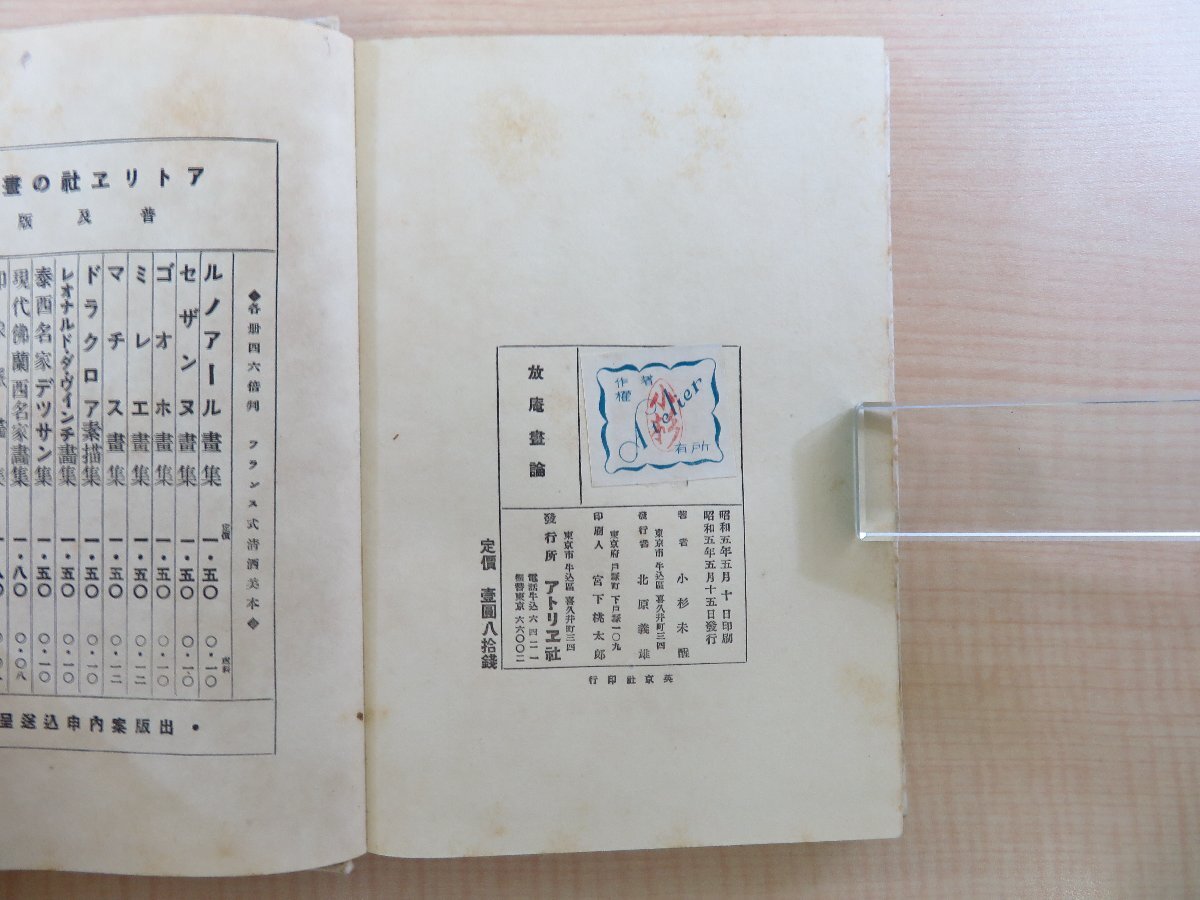 放庵畫論
作者
權
Atelier
有所
昭和五年五月十日印刷
昭和五年五月十五日發行
著者 小杉未醒
東京市牛込區喜久井町三四
發行者 北原義雄
東京府戸塚町下戸塚一〇九
印刷人 宮下桃太郎
東京市牛込區喜久井町三四
發行所 アトリヱ社
電話牛込六四二一
振替東京六六〇〇二
定價 壹圓八拾錢
英京社印行
アトリヱ社の畫
普及版
◆各册四六倍判 フランス式清洒美本◆
定價
送料
ルノアール畫集 一・五〇 〇・一〇
セザンヌ畫集 一・五〇 〇・一〇
ゴオホ畫集 一・五〇 〇・一〇
ミレエ畫集 一・五〇 〇・一二
マチス畫集 一・五〇 〇・一二
ドラクロア素描集 一・五〇 〇・一〇
レオナルド・ダ・ヴインチ畫集 一・五〇 〇・一〇
泰西名家デツサン集 一・五〇 〇・一〇
現代佛蘭西名家畫集 一・八〇 〇・〇八
・出版案内申込送呈